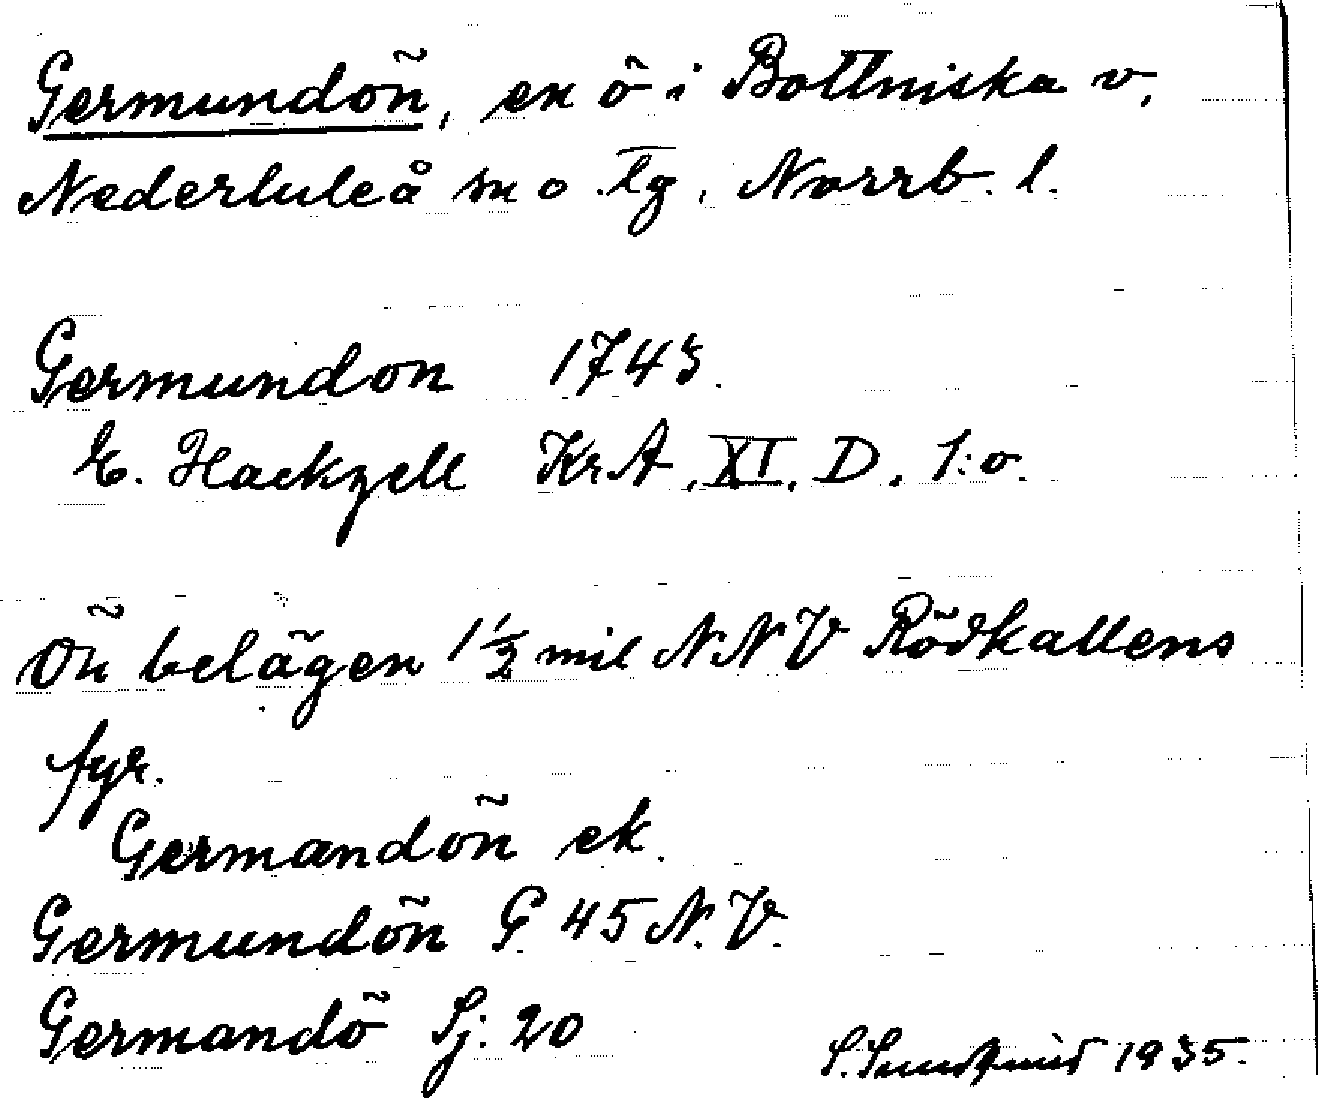 Germundön, en ö i Bottniska v,
Nederluleå sn o tg, Norrb. l.
Germundon 1743.
E. Hackzell KrA, XI, D, 1:o.
Ön belägen 1 1/2 mil NNV Rödkallens
fyr.
Germandön ek.
Germundön G. 45 N.V.
Germandö Sj. 20
S. Sundqvist 1935.